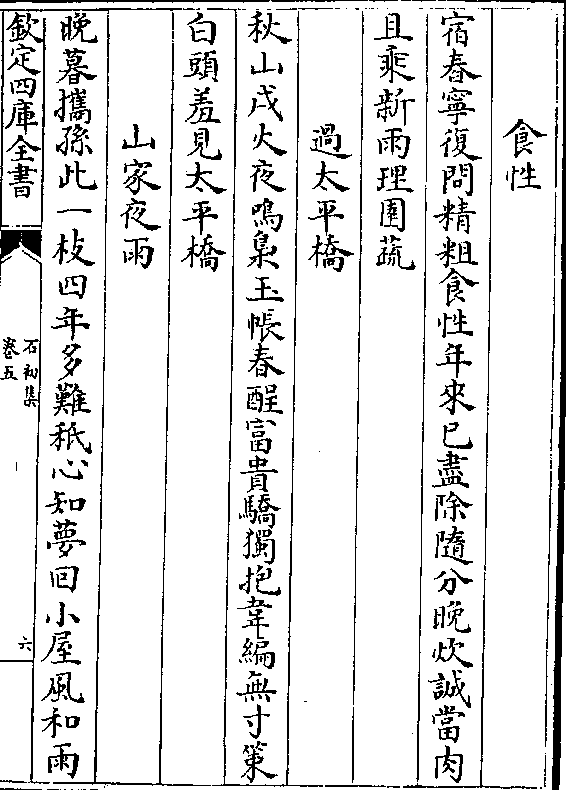 食性
宿舂寧復問精粗食性年來已盡除隨分晚炊誠當肉
且乘新雨理園蔬
過太平橋
秋山戍火夜鳴梟玉帳春酲富貴驕獨抱韋編無寸策
白頭羞見太平橋
山家夜雨
晚暮攜孫此一枝四年多難秖心知夢回小屋風和雨
欽定四庫全書
石初集
卷五
六